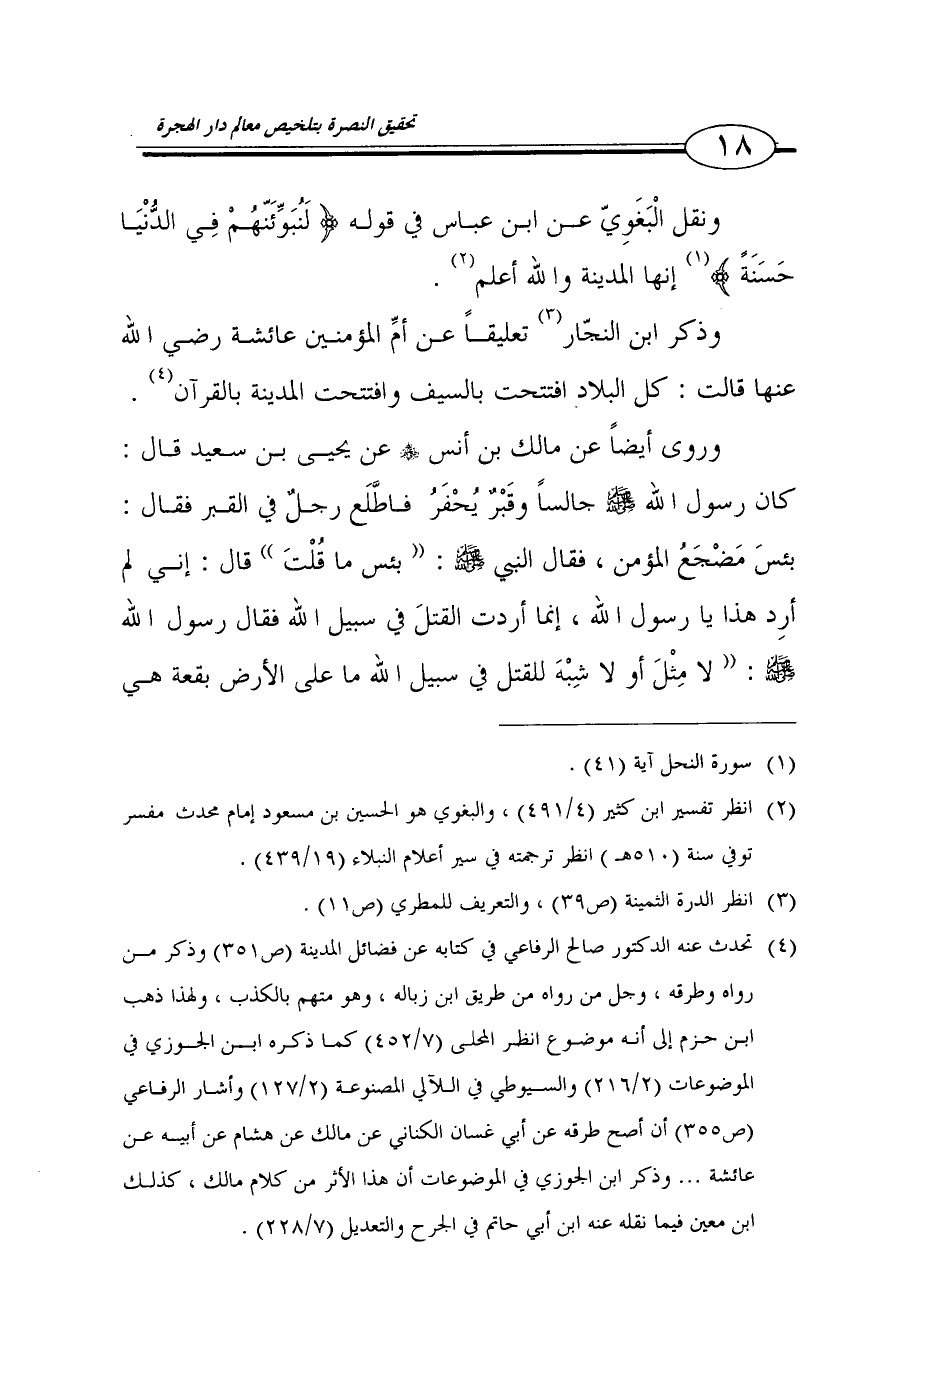 تحقيق النصرة بتلخيص معالم دار الهجرة
١٨
ونقل الْبَغَوِيّ عن ابن عباس في قوله ﴿ لَنُبَوِّئَنَّهُمْ فِي الدُّنْيَا
حَسَنَةً ﴾(١) إنها المدينة والله أعلم(٢) .
وذكر ابن النجّار(٣) تعليقاً عن أمِّ المؤمنين عائشة رضي الله
عنها قالت : كل البلاد افتتحت بالسيف وافتتحت المدينة بالقرآن(٤) .
وروى أيضاً عن مالك بن أنس ﵁ عن يحيى بن سعيد قال :
كان رسول الله ﷺ جالساً وقَبْرٌ يُحْفَرُ فاطَّلَع رجلٌ في القبر فقال :
بئسَ مَضْجَعُ المؤمن ، فقال النبي ﷺ : (( بئس ما قُلْتَ )) قال : إني لم
أرِد هذا يا رسول الله ، إنما أردت القتلَ في سبيل الله فقال رسول الله
ﷺ : (( لا مِثْلَ أو لا شِبْهَ للقتل في سبيل الله ما على الأرض بقعة هي
(١) سورة النحل آية (٤١) .
(٢) انظر تفسير ابن كثير (٤٩١/٤) ، والبغوي هو الحسين بن مسعود إمام محدث مفسر
توفي سنة (٥١٠هـ) انظر ترجمته في سير أعلام النبلاء (٤٣٩/١٩) .
(٣) انظر الدرة الثمينة (ص٣٩) ، والتعريف للمطري (ص١١) .
(٤) تحدث عنه الدكتور صالح الرفاعي في كتابه عن فضائل المدينة (ص٣٥١) وذكر من
رواه وطرقه ، وجل من رواه من طريق ابن زباله ، وهو متهم بالكذب ، ولهذا ذهب
ابن حزم إلى أنه موضوع انظر المحلى (٤٥٢/٧) كما ذكره ابن الجوزي في
الموضوعات (٢١٦/٢) والسيوطي في اللآلي المصنوعة (١٢٧/٢) وأشار الرفاعي
(ص٣٥٥) أن أصح طرقه عن أبي غسان الكناني عن مالك عن هشام عن أبيه عن
عائشة ... وذكر ابن الجوزي في الموضوعات أن هذا الأثر من كلام مالك ، كذلك
ابن معين فيما نقله عنه ابن أبي حاتم في الجرح والتعديل (٢٢٨/٧) .